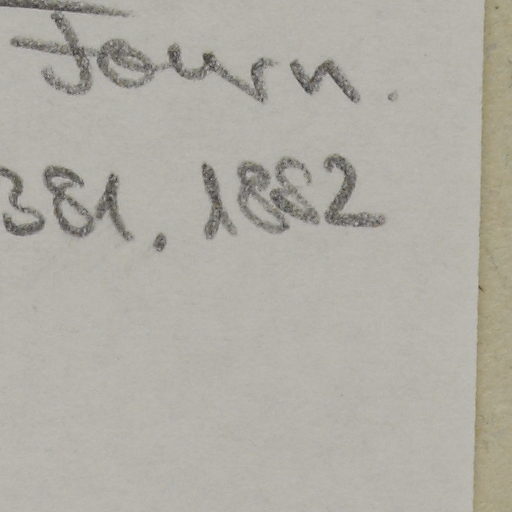 Journ.
381. 1882